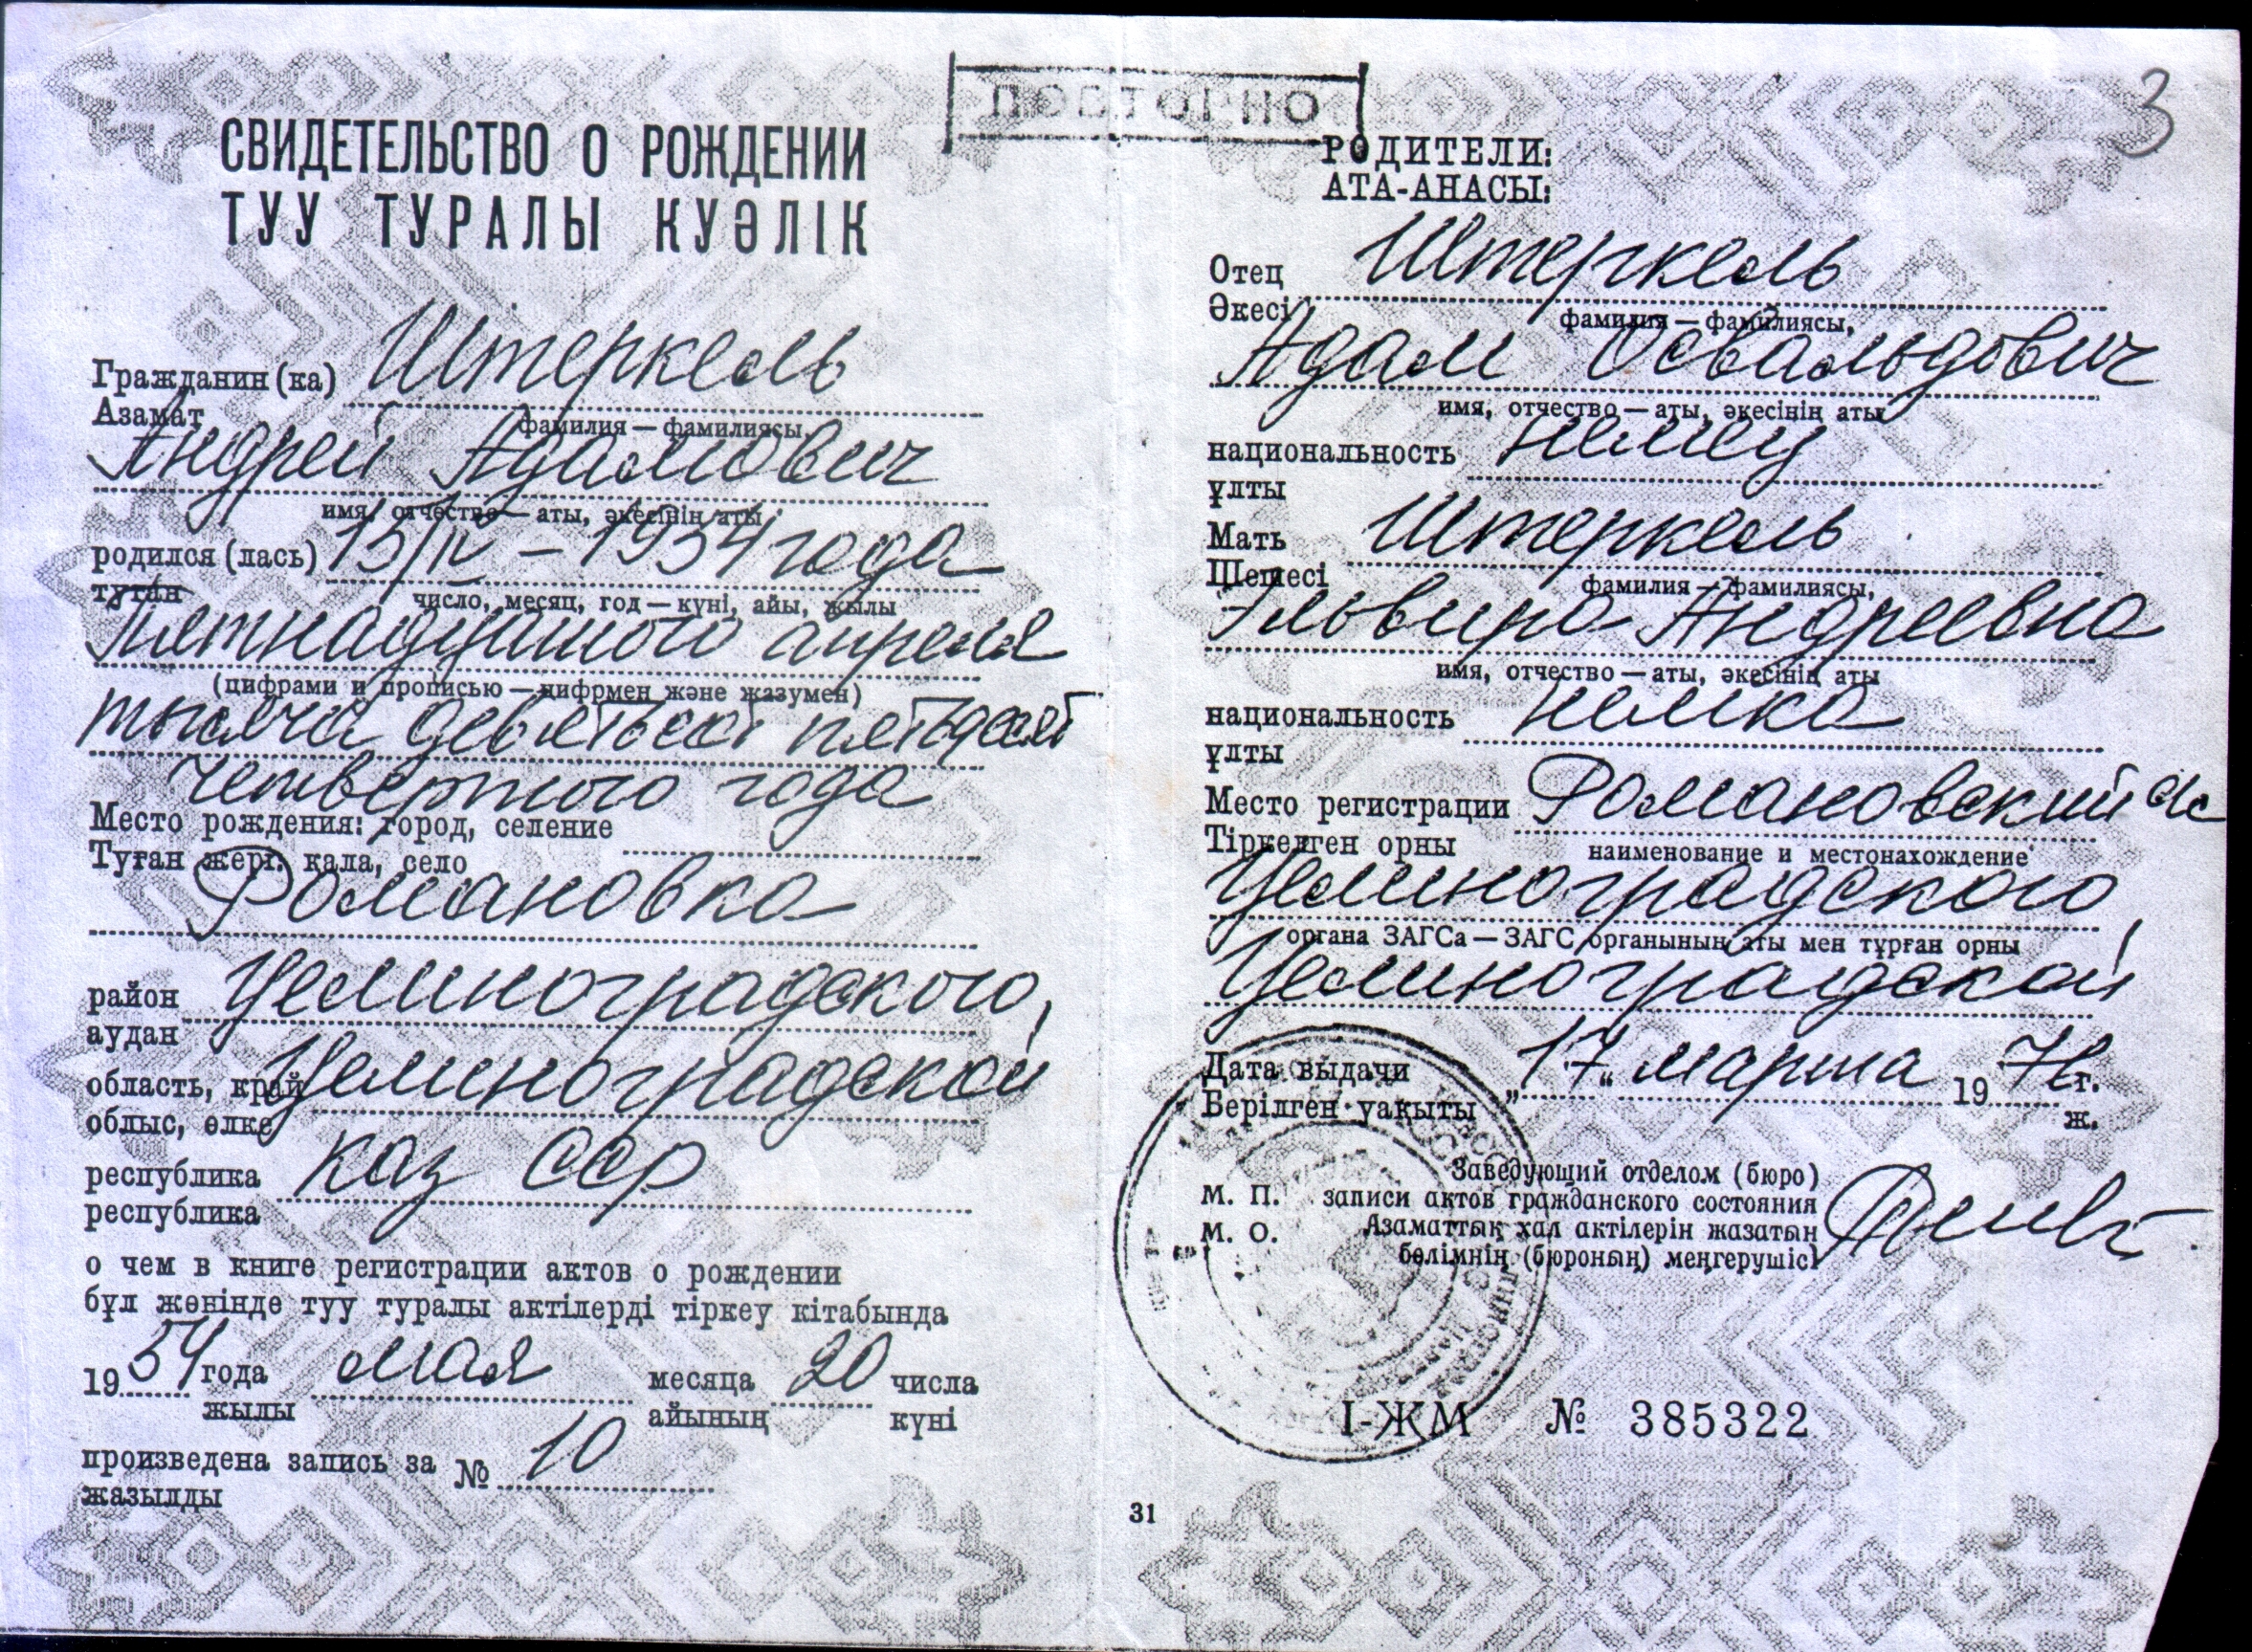 ПОВТОРНО
3
СВИДЕТЕЛЬСТВО О РОЖДЕНИИ
ТУУ ТУРАЛЫ КУӘЛІК
Гражданин (ка) Штеркель
Азамат
фамилия — фамилиясы,
Андрей Адамович
имя, отчество — аты, әкесінің аты
родился (лась) 15/IV – 1954 года
туған
число, месяц, год — күні, айы, жылы
пятнадцатого апреля
(цифрами и прописью — цифрмен және жазумен)
тысяча девятьсот пятьдесят
четвертого года
Место рождения: город, селение
Туған жері: қала, село
Романовка
район Целиноградского,
аудан
область, край Целиноградской
облыс, өлке
республика Каз ССР
республика
о чем в книге регистрации актов о рождении
бұл жөнінде туу туралы актілерді тіркеу кітабында
1954 года мая месяца 20 числа
жылы айының күні
произведена запись за № 10
жазылды
РОДИТЕЛИ:
АТА-АНАСЫ:
Отец Штеркель
Әкесі
фамилия — фамилиясы,
Адам Освальдович
имя, отчество — аты, әкесінің аты
национальность немец
ұлты
Мать Штеркель
Шешесі
фамилия — фамилиясы,
Эльвира Андреевна
имя, отчество — аты, әкесінің аты
национальность немка
ұлты
Место регистрации Романовский с/с
Тіркелген орны
наименование и местонахождение
Целиноградского,
органа ЗАГСа — ЗАГС органының аты мен тұрған орны
Целиноградской
Дата выдачи „17“ марта 1976 г.
Берілген уақыты ж.
Заведующий отделом (бюро)
М. П. записи актов гражданского состояния
М. О. Азаматтық хал актілерін жазатын
бөлімнің (бюроның) меңгерушісі
I-ЖМ № 385322
31